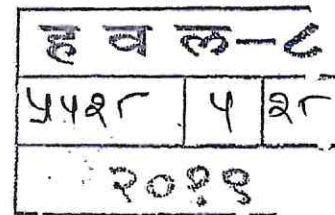 ह व ल-८
५५२८ ५ २८
२०११